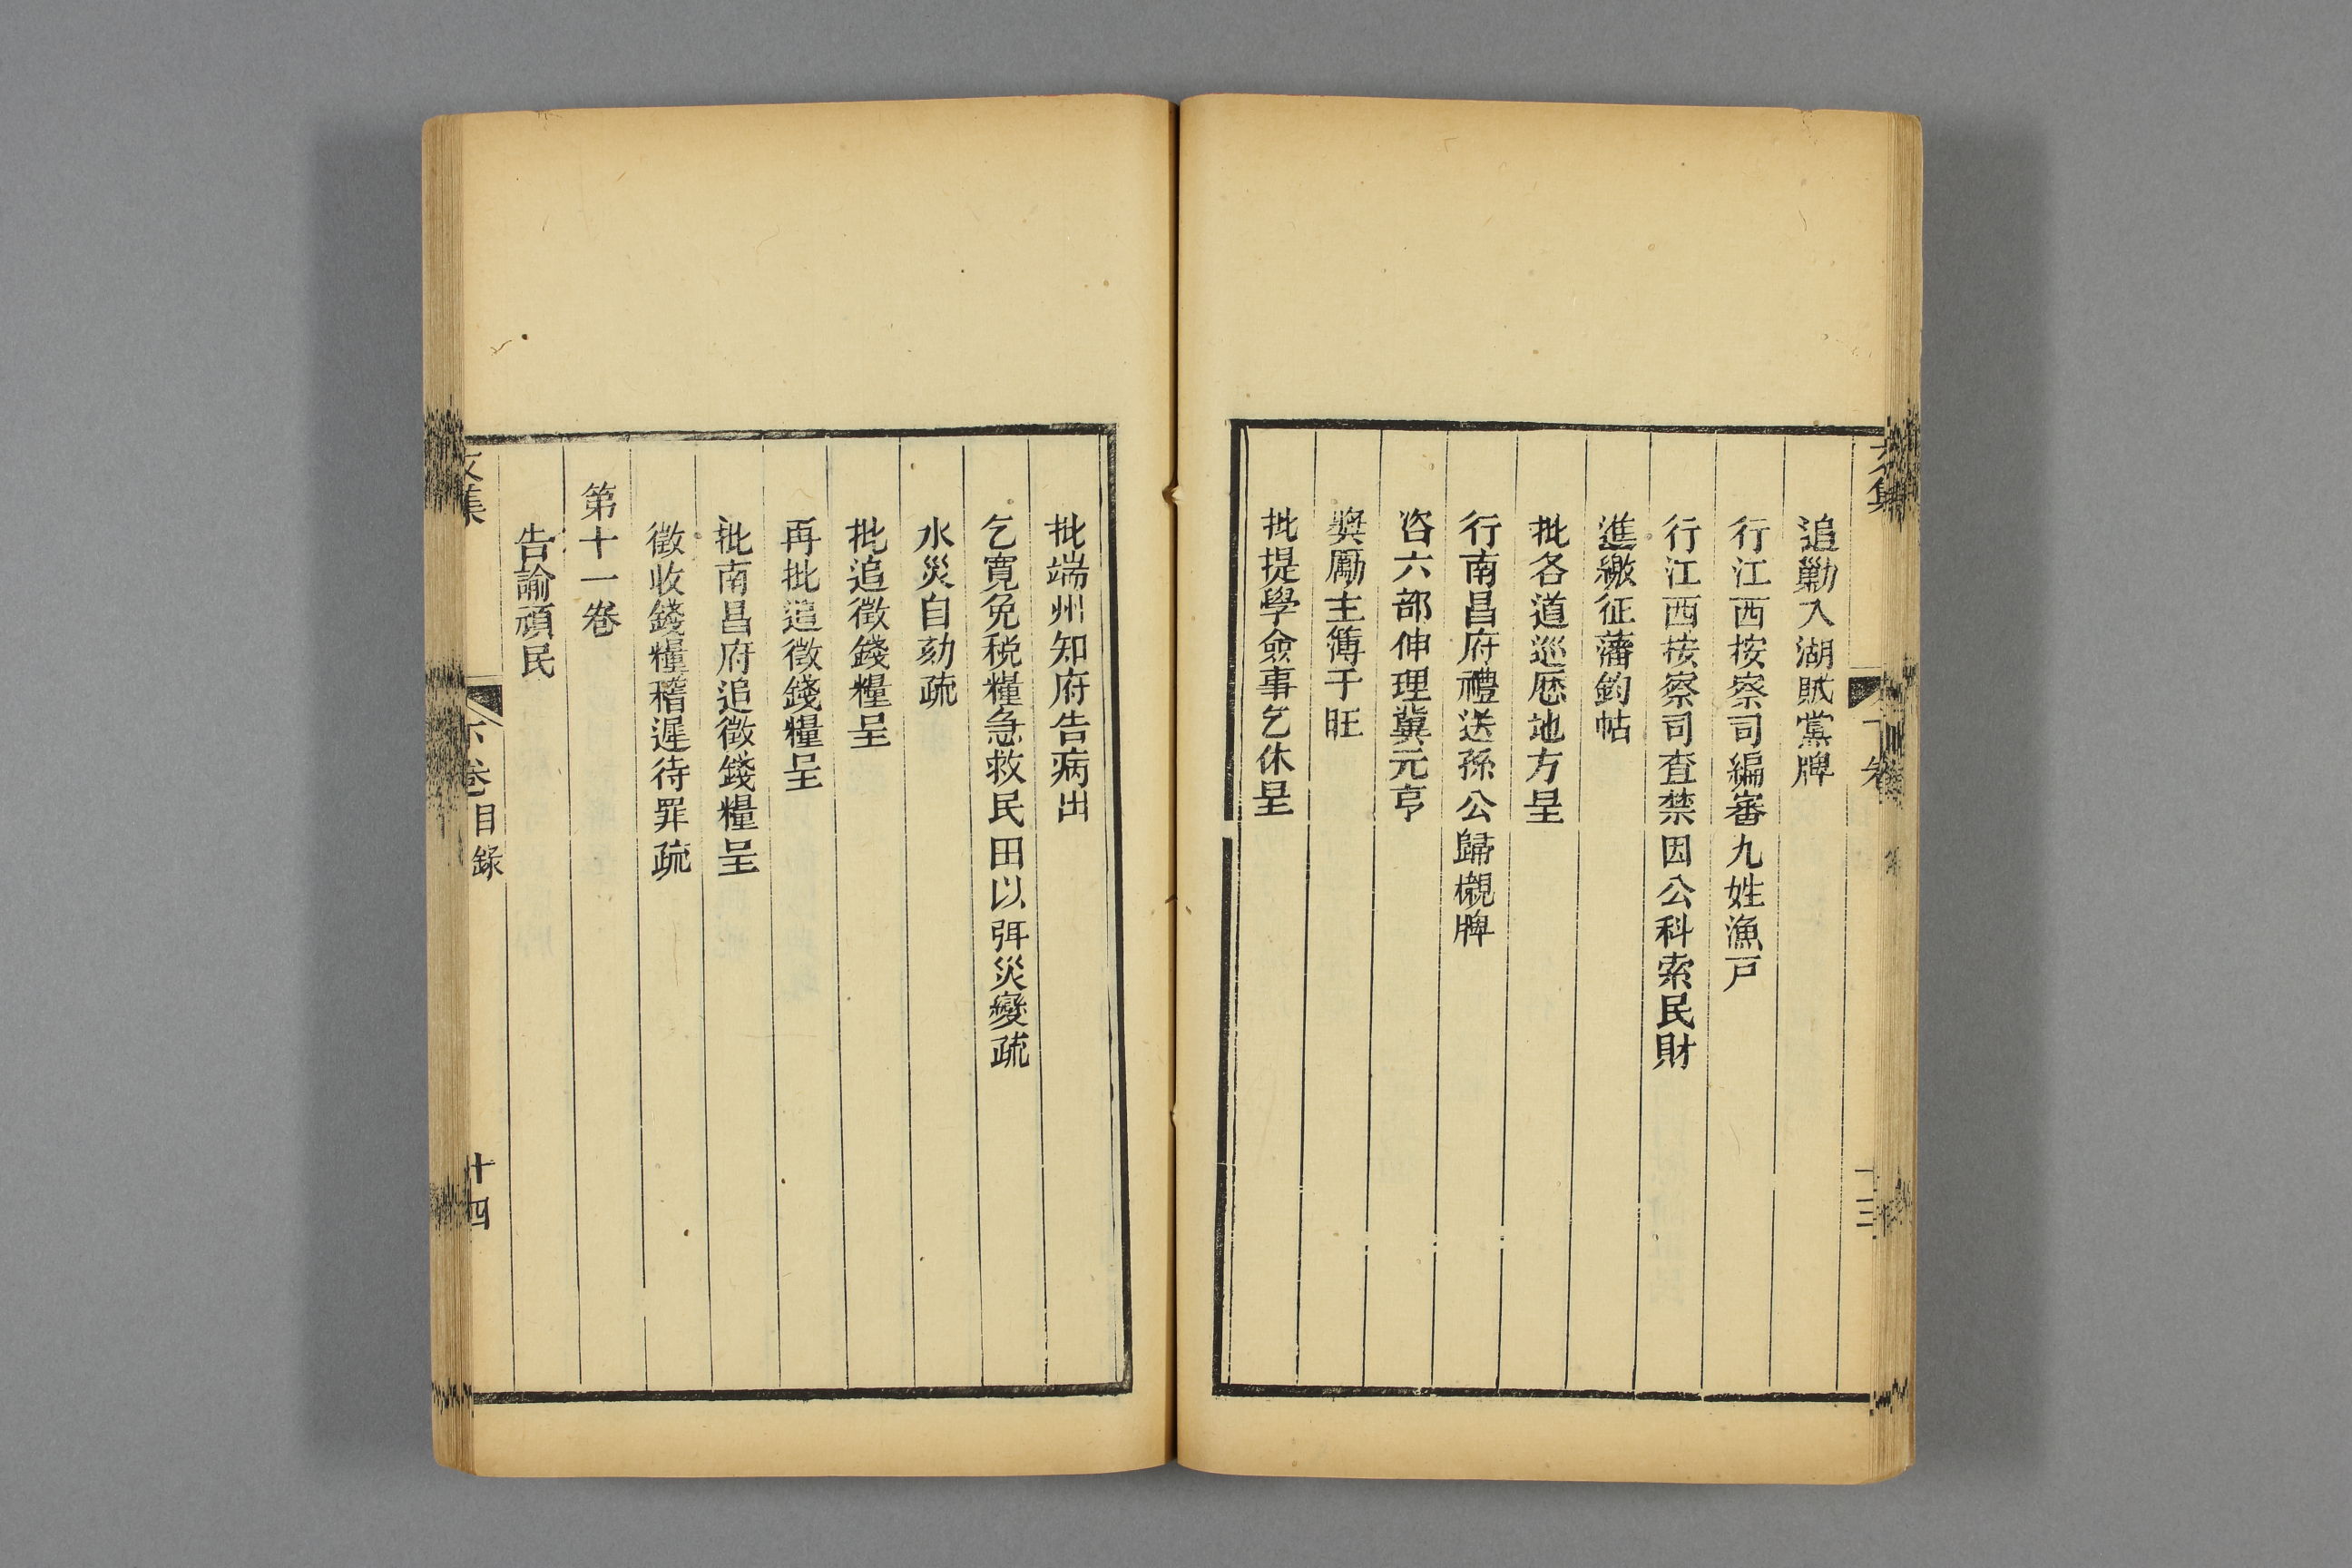 追勦入湖賊黨牌
行江西按察司編審九姓漁戸
行江西按察司査禁因公科索民財
進繳征藩鈞帖
批各道巡歷地方呈
行南昌府禮送孫公歸櫬牌
咨六部伸理冀元亨
奬勵主簿于旺
批提學僉事乞休呈
批端州知府告病出
乞寛免税糧急救民田以弭災變疏
水災自劾疏
批追徵錢糧呈
再批追徵錢糧呈
批南昌府追徵錢糧呈
徵收錢糧稽遲待罪疏
第十一卷
告諭頑民
文集
下卷目錄
十四